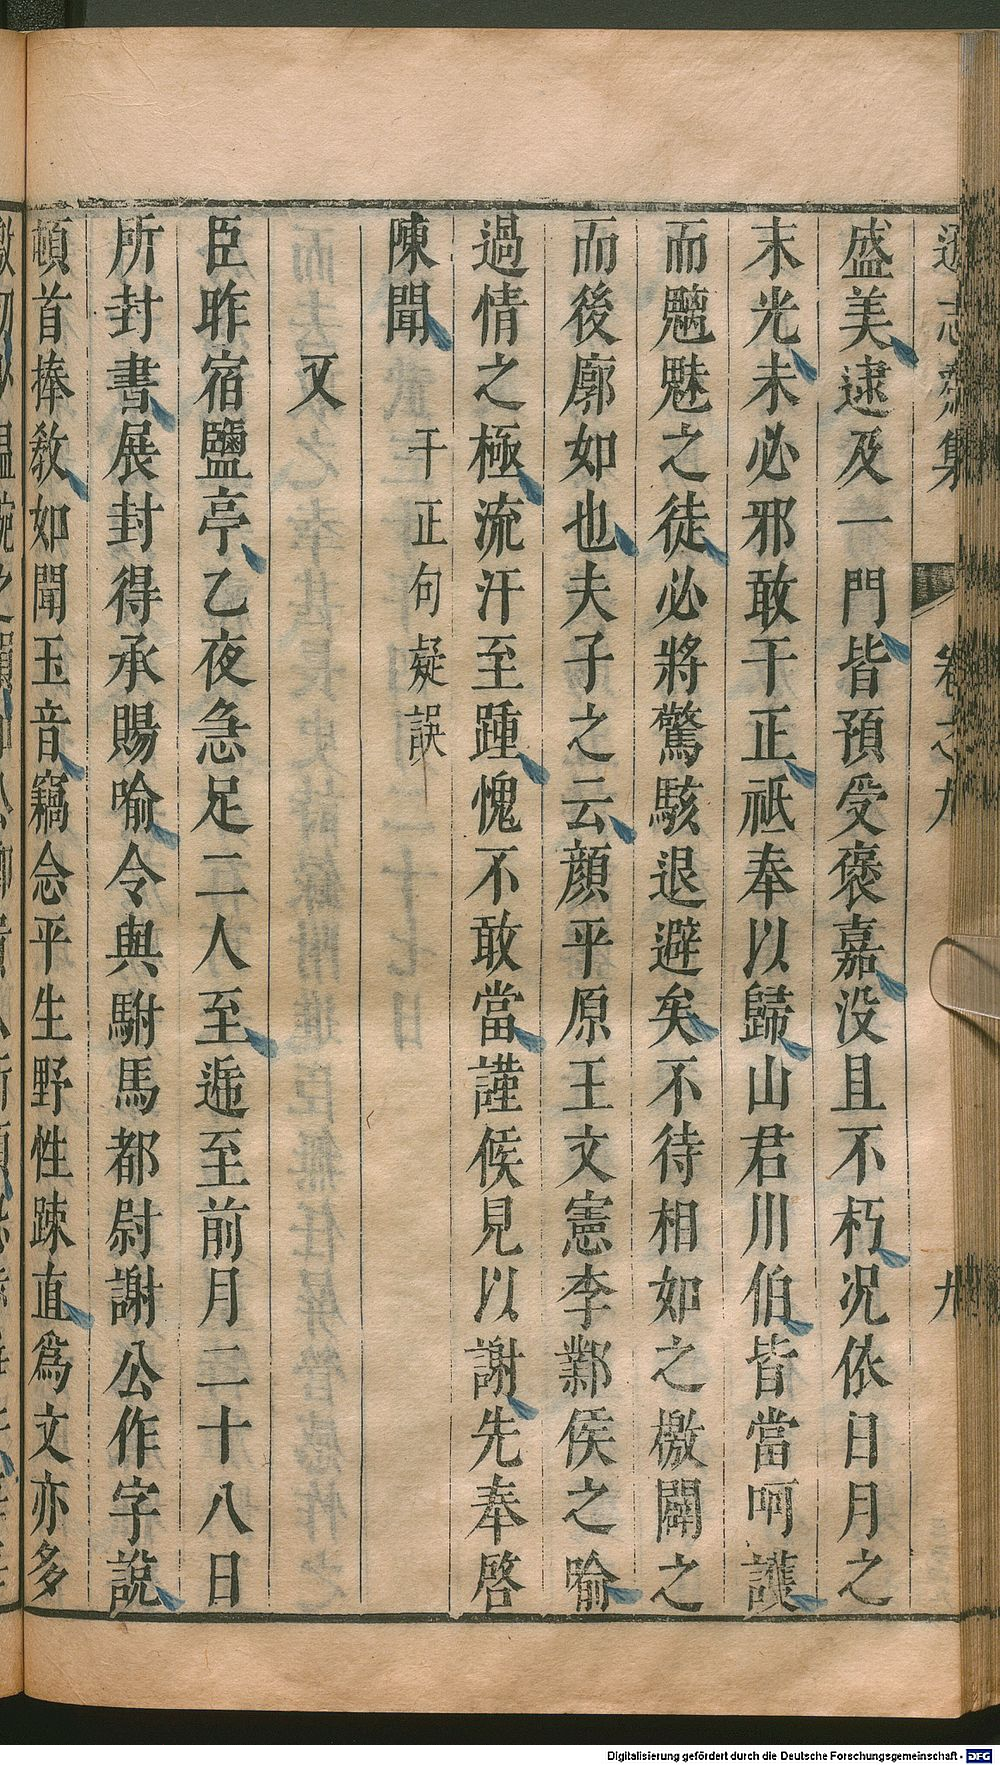 遜志齋集 卷之九 九
盛美逮及一門皆預受褒嘉没且不朽况依日月之
末光未必邪敢干正祗奉以歸山君川伯皆當呵護
而魑魅之徒必將驚駭退避矣不待相如之檄闢之
而後廓如也夫子之云顔平原王文憲李鄴侯之喻
過情之極流汗至踵愧不敢當謹俟見以謝先奉啓
陳聞 干正句疑誤
又
臣昨宿鹽亭乙夜急足二人至遞至前月二十八日
所封書展封得承賜喻令與駙馬都尉謝公作字説
頓首捧教如聞玉音竊念平生野性踈直爲文亦多
Digitalisierung gefördert durch die Deutsche Forschungsgemeinschaft - DFG